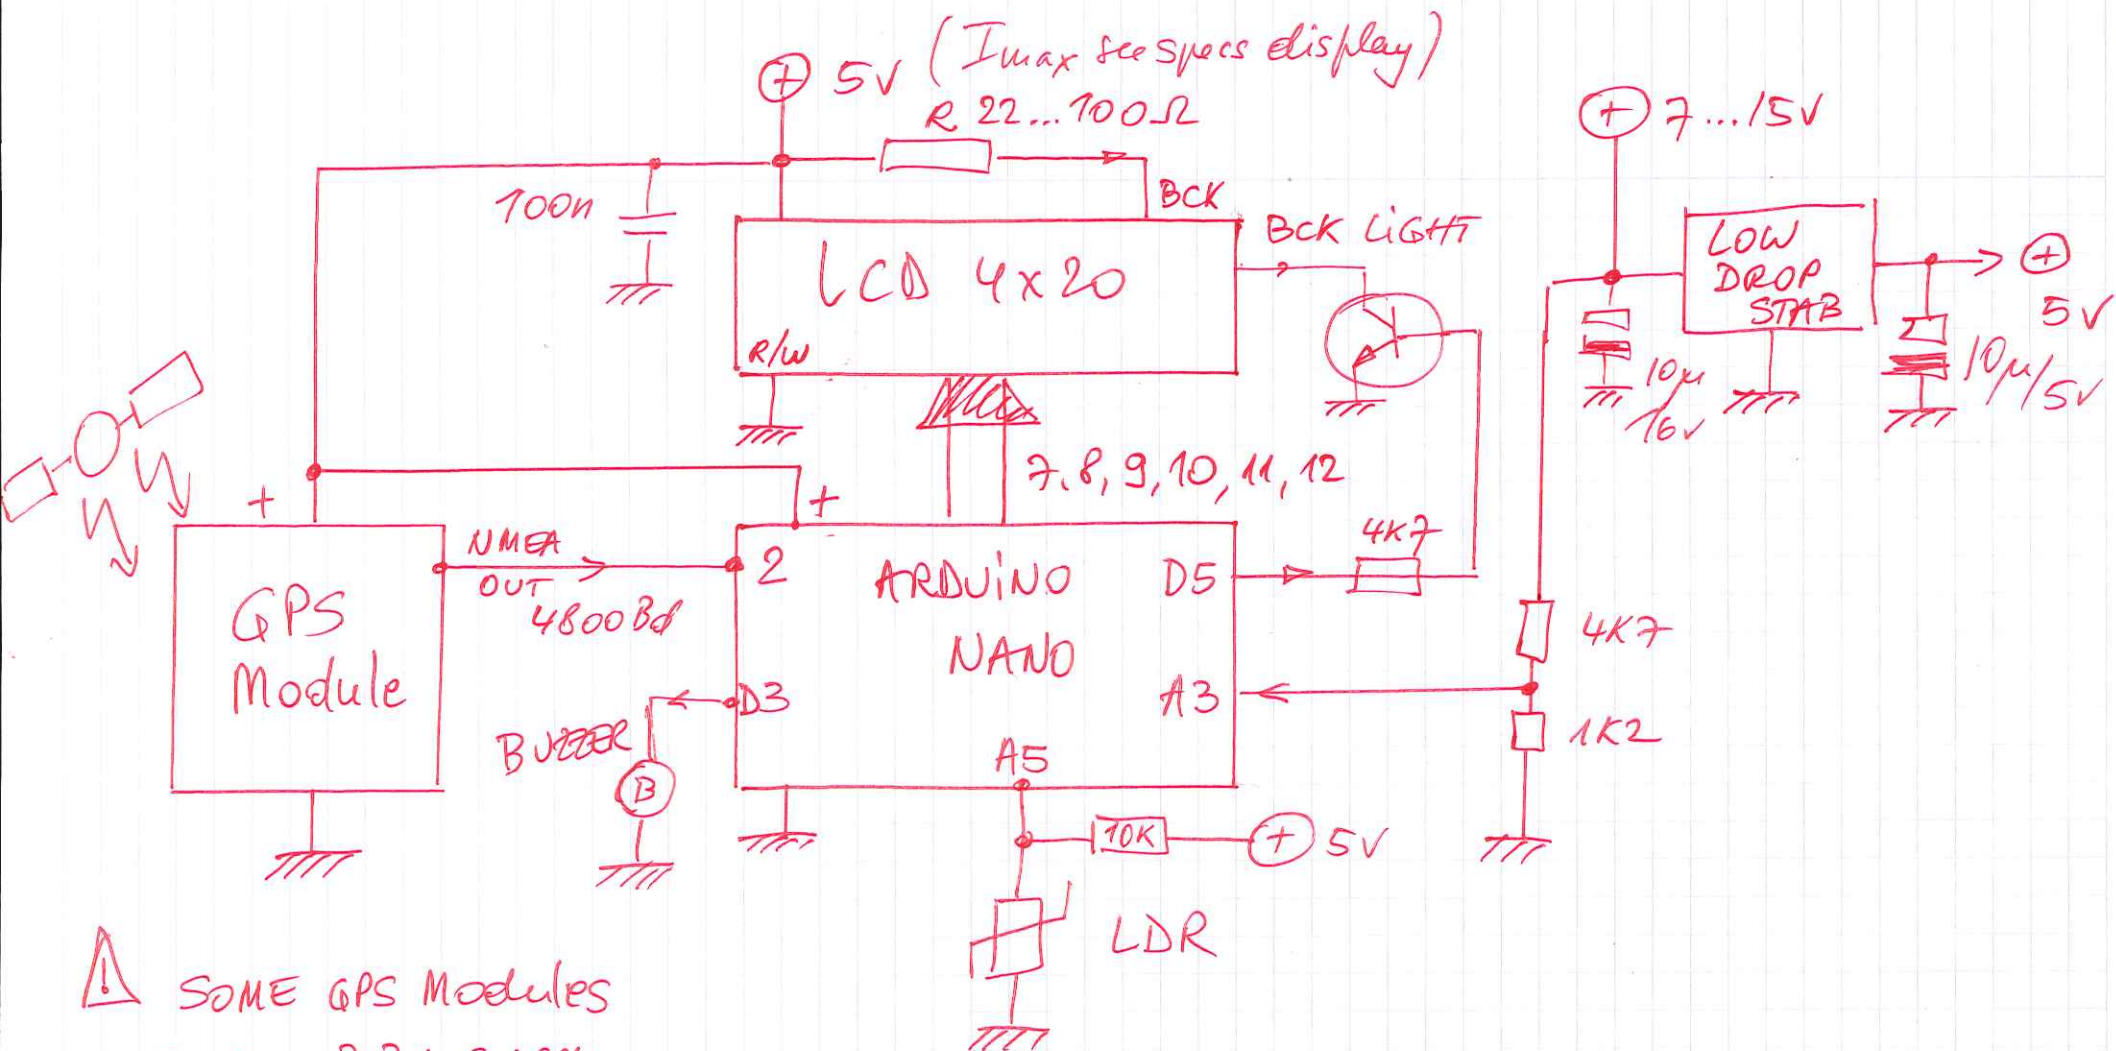 (Imax see specs display)
+ 5V
R 22...100Ω
+ 7...15V
100n
BCK
BCK LiGHT
LCD 4x20
R/W
LOW
DROP
STAB
+
5V
10µ
16V
10µ/5V
7.8,9,10,11,12
+
+
NMEA
OUT
4800Bd
2
ARDUiNO
NANO
D5
4K7
GPS
Module
D3
A3
4K7
1K2
BUZZER
B
A5
10K
+ 5V
LDR
! SOME GPS Modules